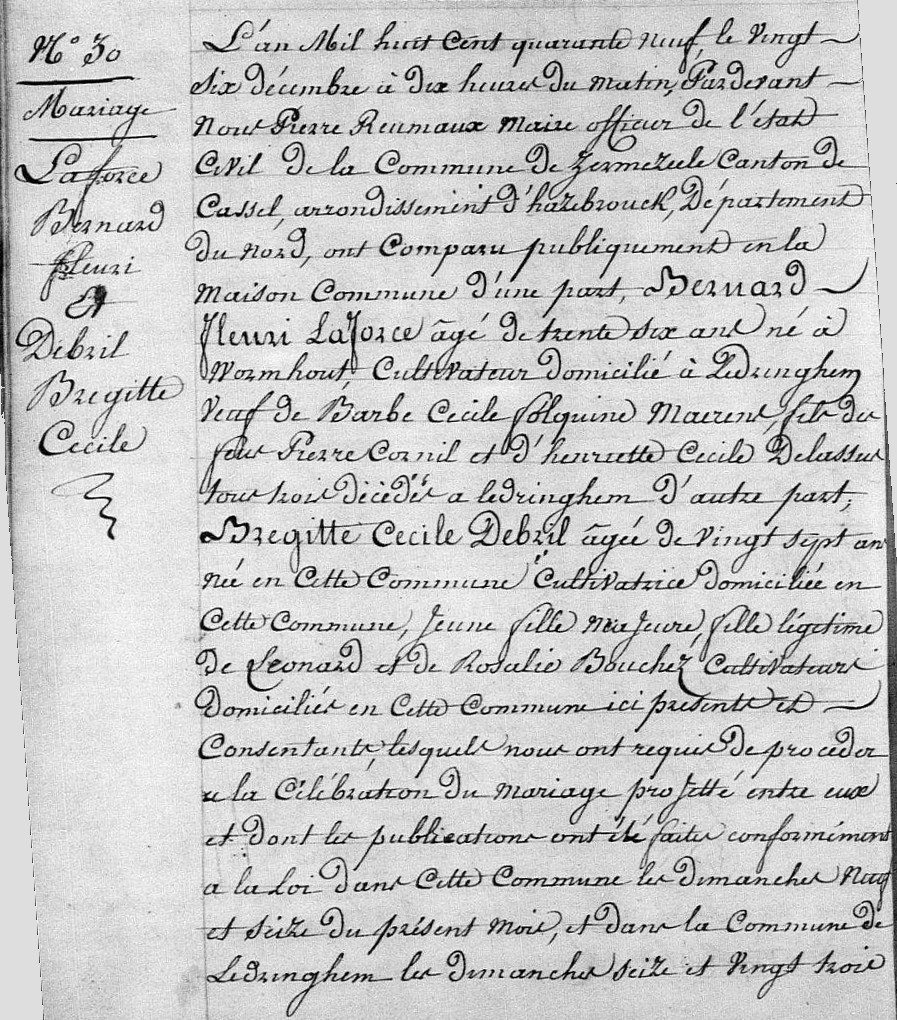 N° 30
Mariage
Laforce
Bernard
fleuri
Et
Debril
Bregitte
Cecile
L'an Mil huit Cent quarante Neuf, le Vingt
Six décembre à dix heures du Matin, Pardevant
Nous Pierre Reumaux Maire officier de l'état
Civil de la Commune de Zermezeele Canton de
Cassel, arrondissement d'hazebrouck, Département
du Nord, ont Comparu publiquement en la
Maison Commune d'une part, Bernard
fleuri Laforce âgé de trente six ans né à
Wormhout, Cultivateur domicilié à Ledringhem
Veuf de Barbe Cecile folquine Maerens, fils de
feus Pierre Cornil et d'henriette Cecile Delassus
tous trois décédés a ledringhem d'autre part,
Bregitte Cecile Debril âgée de Vingt sept ans
né en Cette Commune Cultivatrice domiciliée en
Cette Commune, Jeune fille Majeure, fille légitime
de Leonard et de Rosalie Bouchez Cultivateurs
domiciliés en Cette Commune ici présents et
Consentants, lesquels nous ont requis de procéder
a la Célébration du Mariage projetté entre eux
et dont les publications ont été faites conformément
a la Loi dans Cette Commune les dimanches Neuf
et seize du présent mois, et dans la Commune de
Ledringhem les dimanches seize et Vingt trois